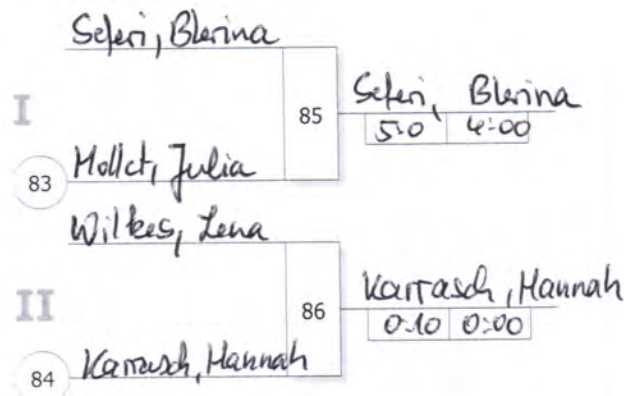 Seferi, Blerina
I
85
Seferi, Blerina
5:0 4:00
83 Mollet, Julia
Wilkes, Lena
II
86
Karrasch, Hannah
0:10 0:00
84 Karrasch, Hannah